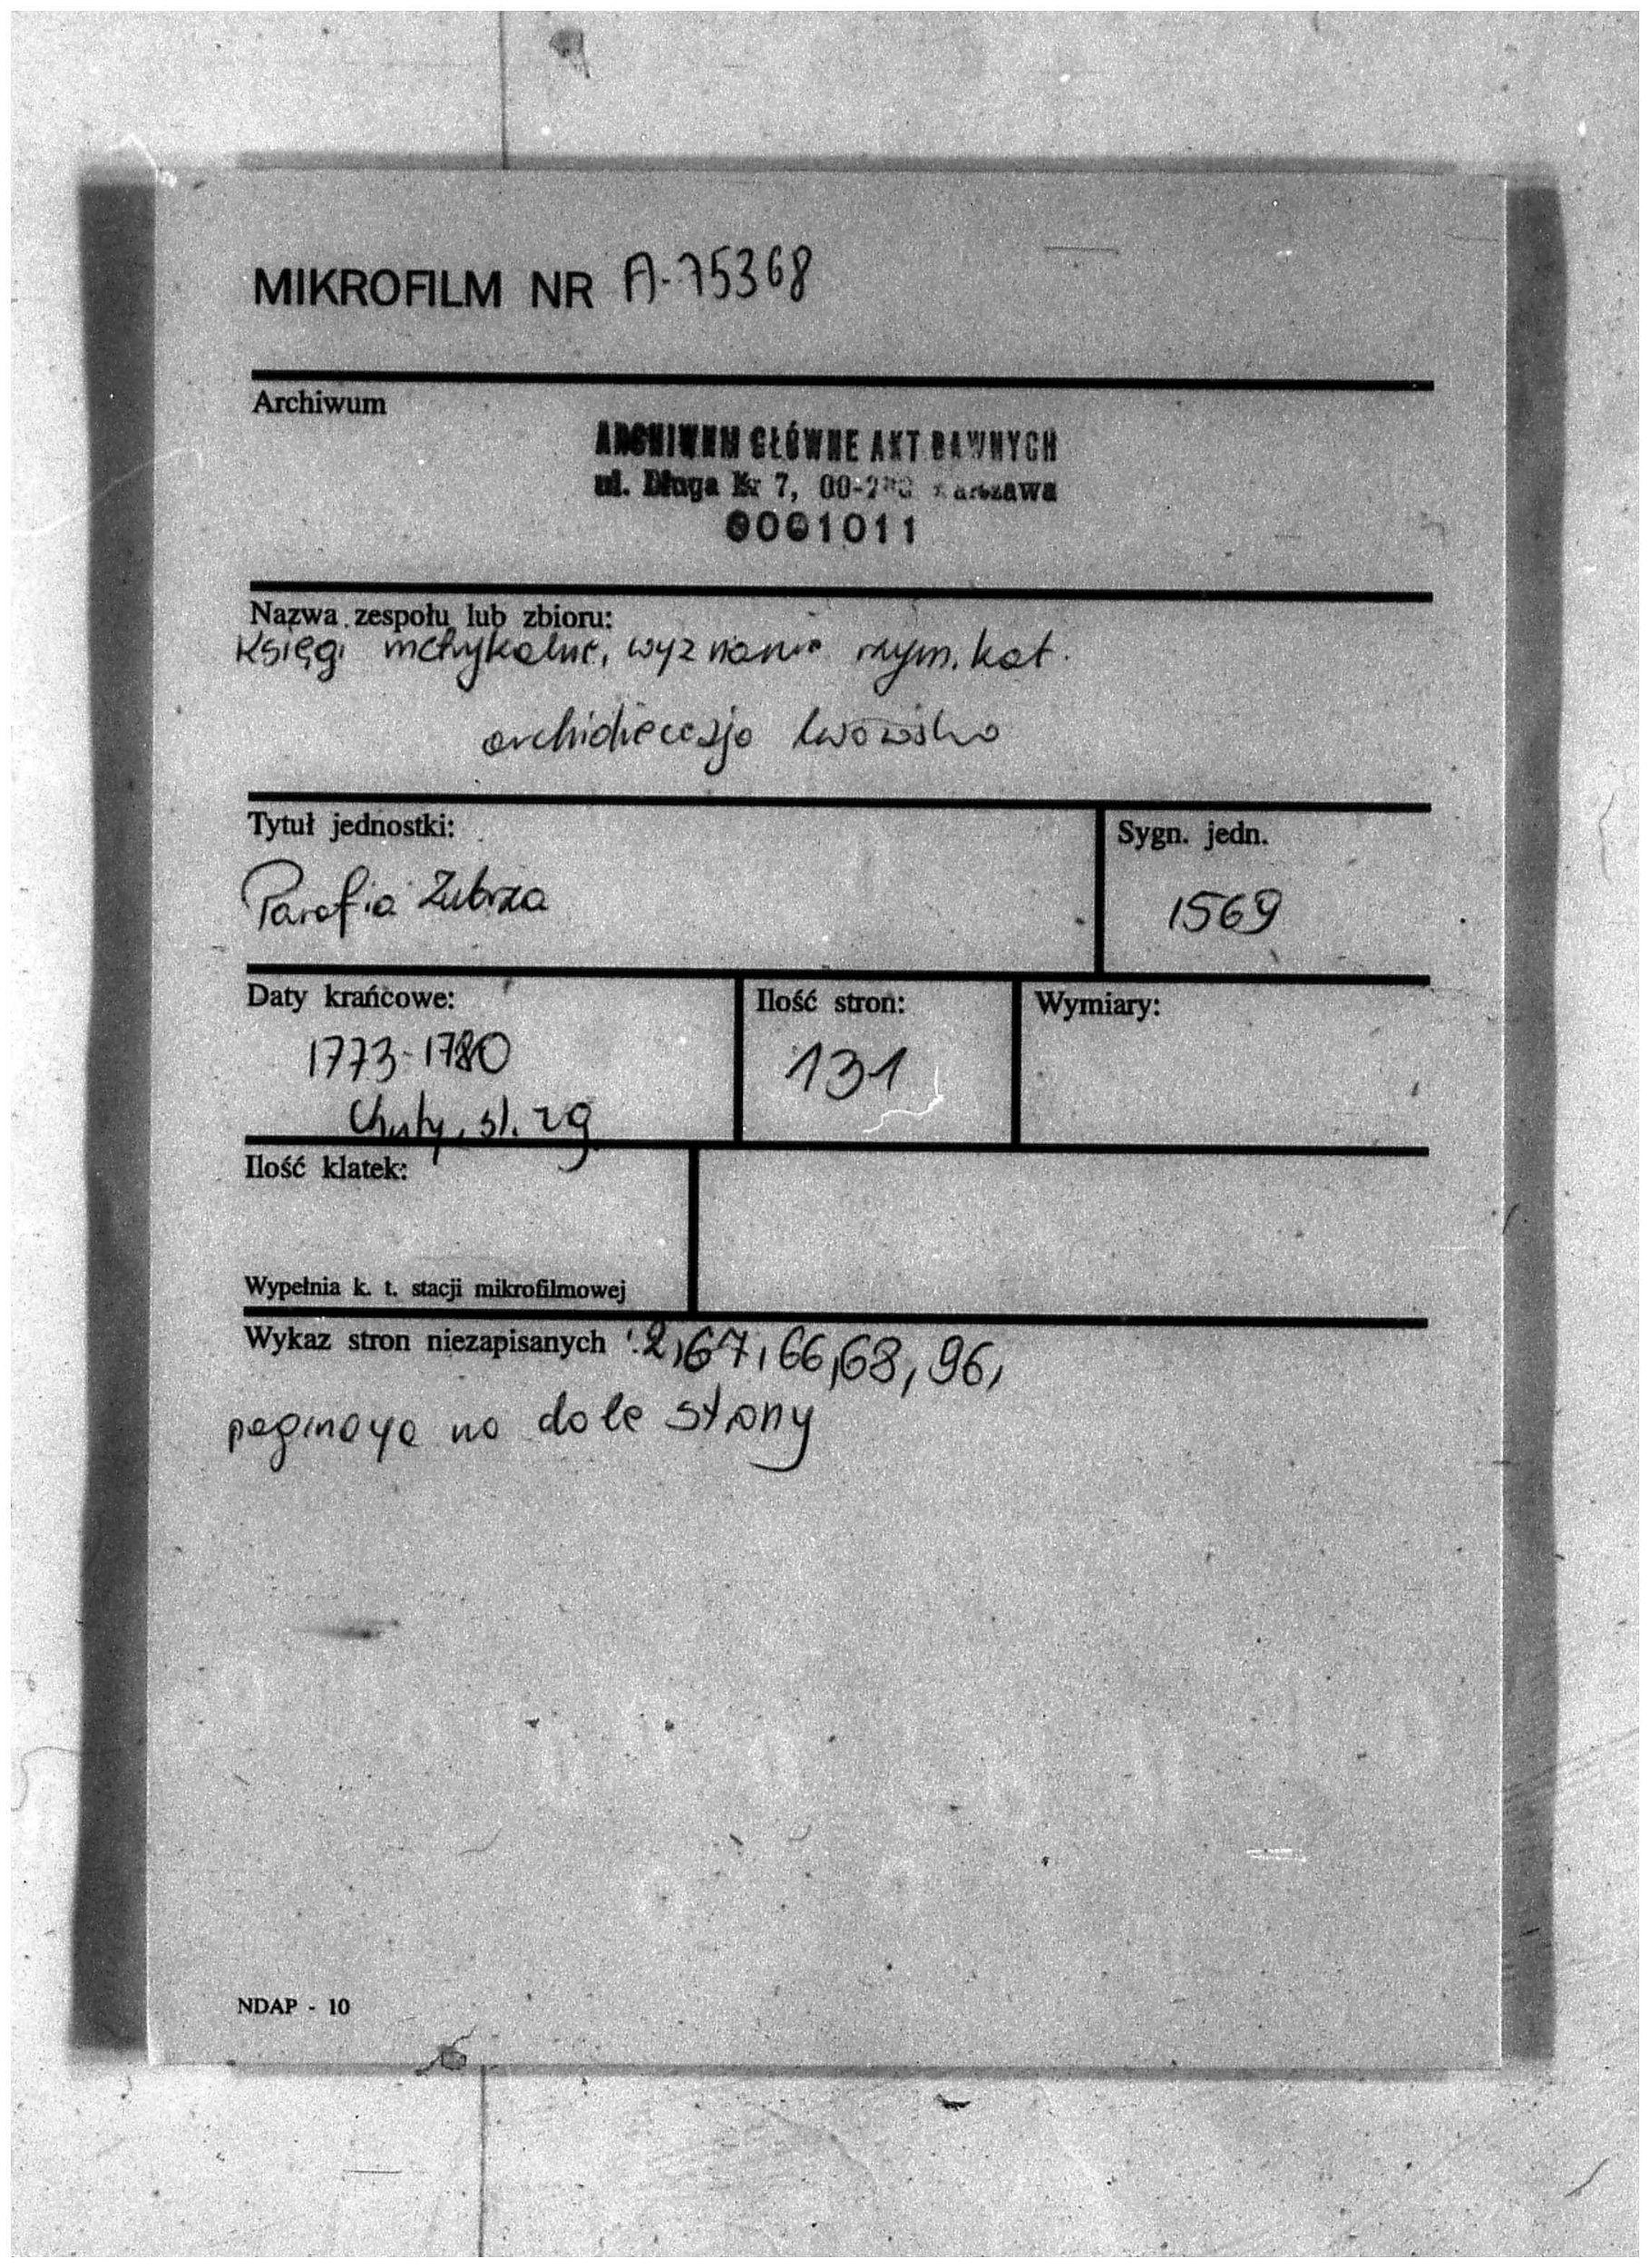 MIKROFILM NR A-75368
Archiwum
ARCHIWUM GŁÓWNE AKT DAWNYCH
ul. Długa Nr 7, 00-2 Warszawa
0001011
Nazwa zespołu lub zbioru:
Księgi metrykalne, wyznania rzym. kat.
archidiecezja lwowska
Tytuł jednostki:
Sygn. jedn.
Parafia Zubrza
1569
Daty krańcowe:
Ilość stron:
Wymiary:
1773-1780
131
Chrzty, śl. zg
Ilość klatek:
Wypełnia k. t. stacji mikrofilmowej
Wykaz stron niezapisanych : 2, 67, 66, 68, 96,
paginacja na dole strony
NDAP - 10